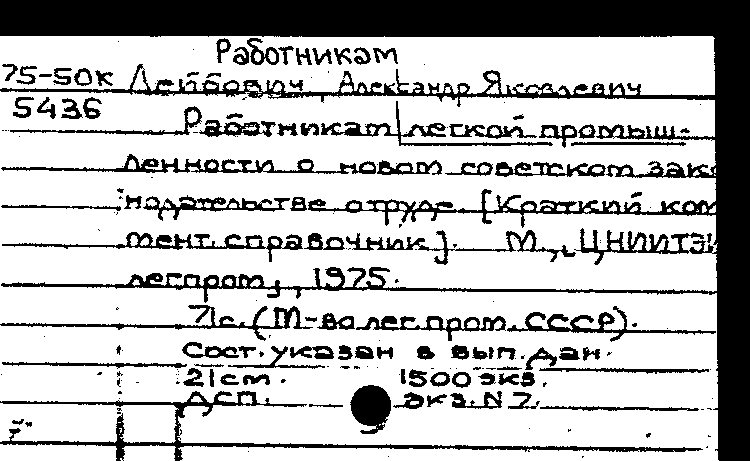 Работникам
75-50к Лейбович, Александр Яковлевич
5436
Работникам легкой промыш-
ленности о новом советском зако
нодательстве о труде. [Краткий ком
мент. справочник]. М., ЦНИИТЭИ
легпром, 1975.
71с. (М-во лег. пром. СССР).
Сост. указан в вып. дан.
21 см. 1500 экз.
ДСП. экз. N 7.